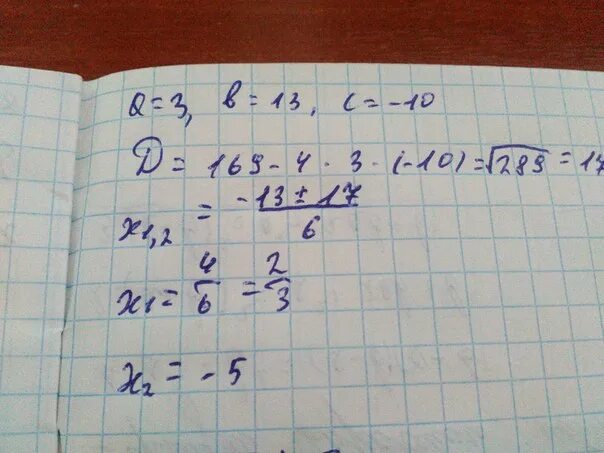 a=3, b=13, c=-10
D= 169-4·3·(-10)=√289=17
x1,2 = -13±17/6
x1= 4/6 = 2/3
x2= -5